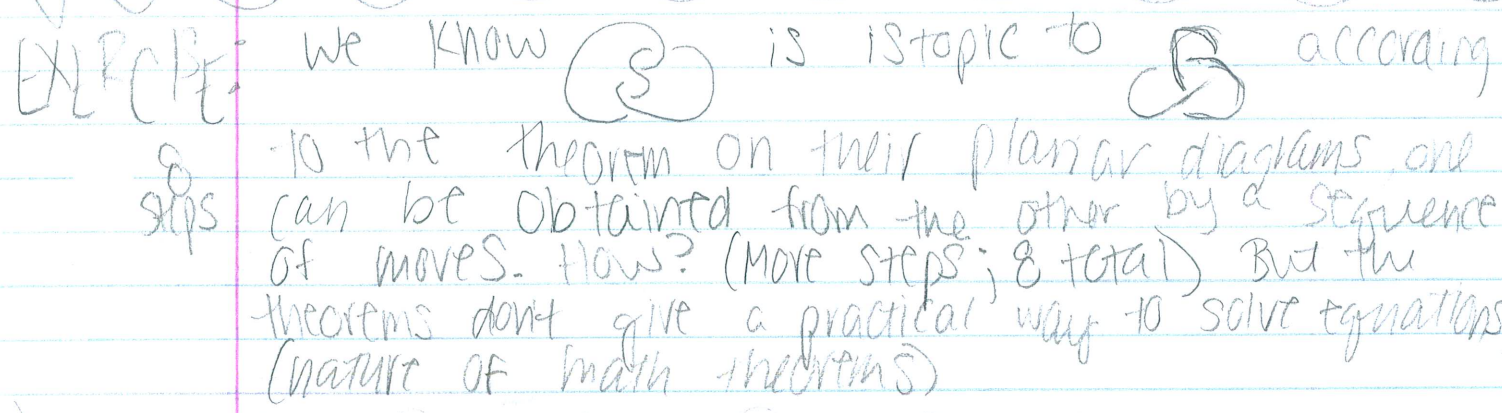 EXERCISE: we know is istopic to according
to the theorem on their planar diagrams one
8 steps can be obtained from the other by a sequence
of moves. How? (More steps; 8 total) But the
theorems don't give a practical way to solve equations
(nature of math theorems)